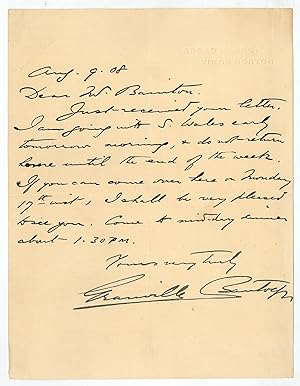 Aug. 9. 08
Dear Mr Bainton.
Just received your letter.
I am going into S. Wales early
tomorrow morning, & do not return
home until the end of the week.
If you can come over here on Monday
17th inst, I shall be very pleased
to see you. Come to mid-day dinner
about 1.30 P.M.
Yours very truly
Granville Bantock